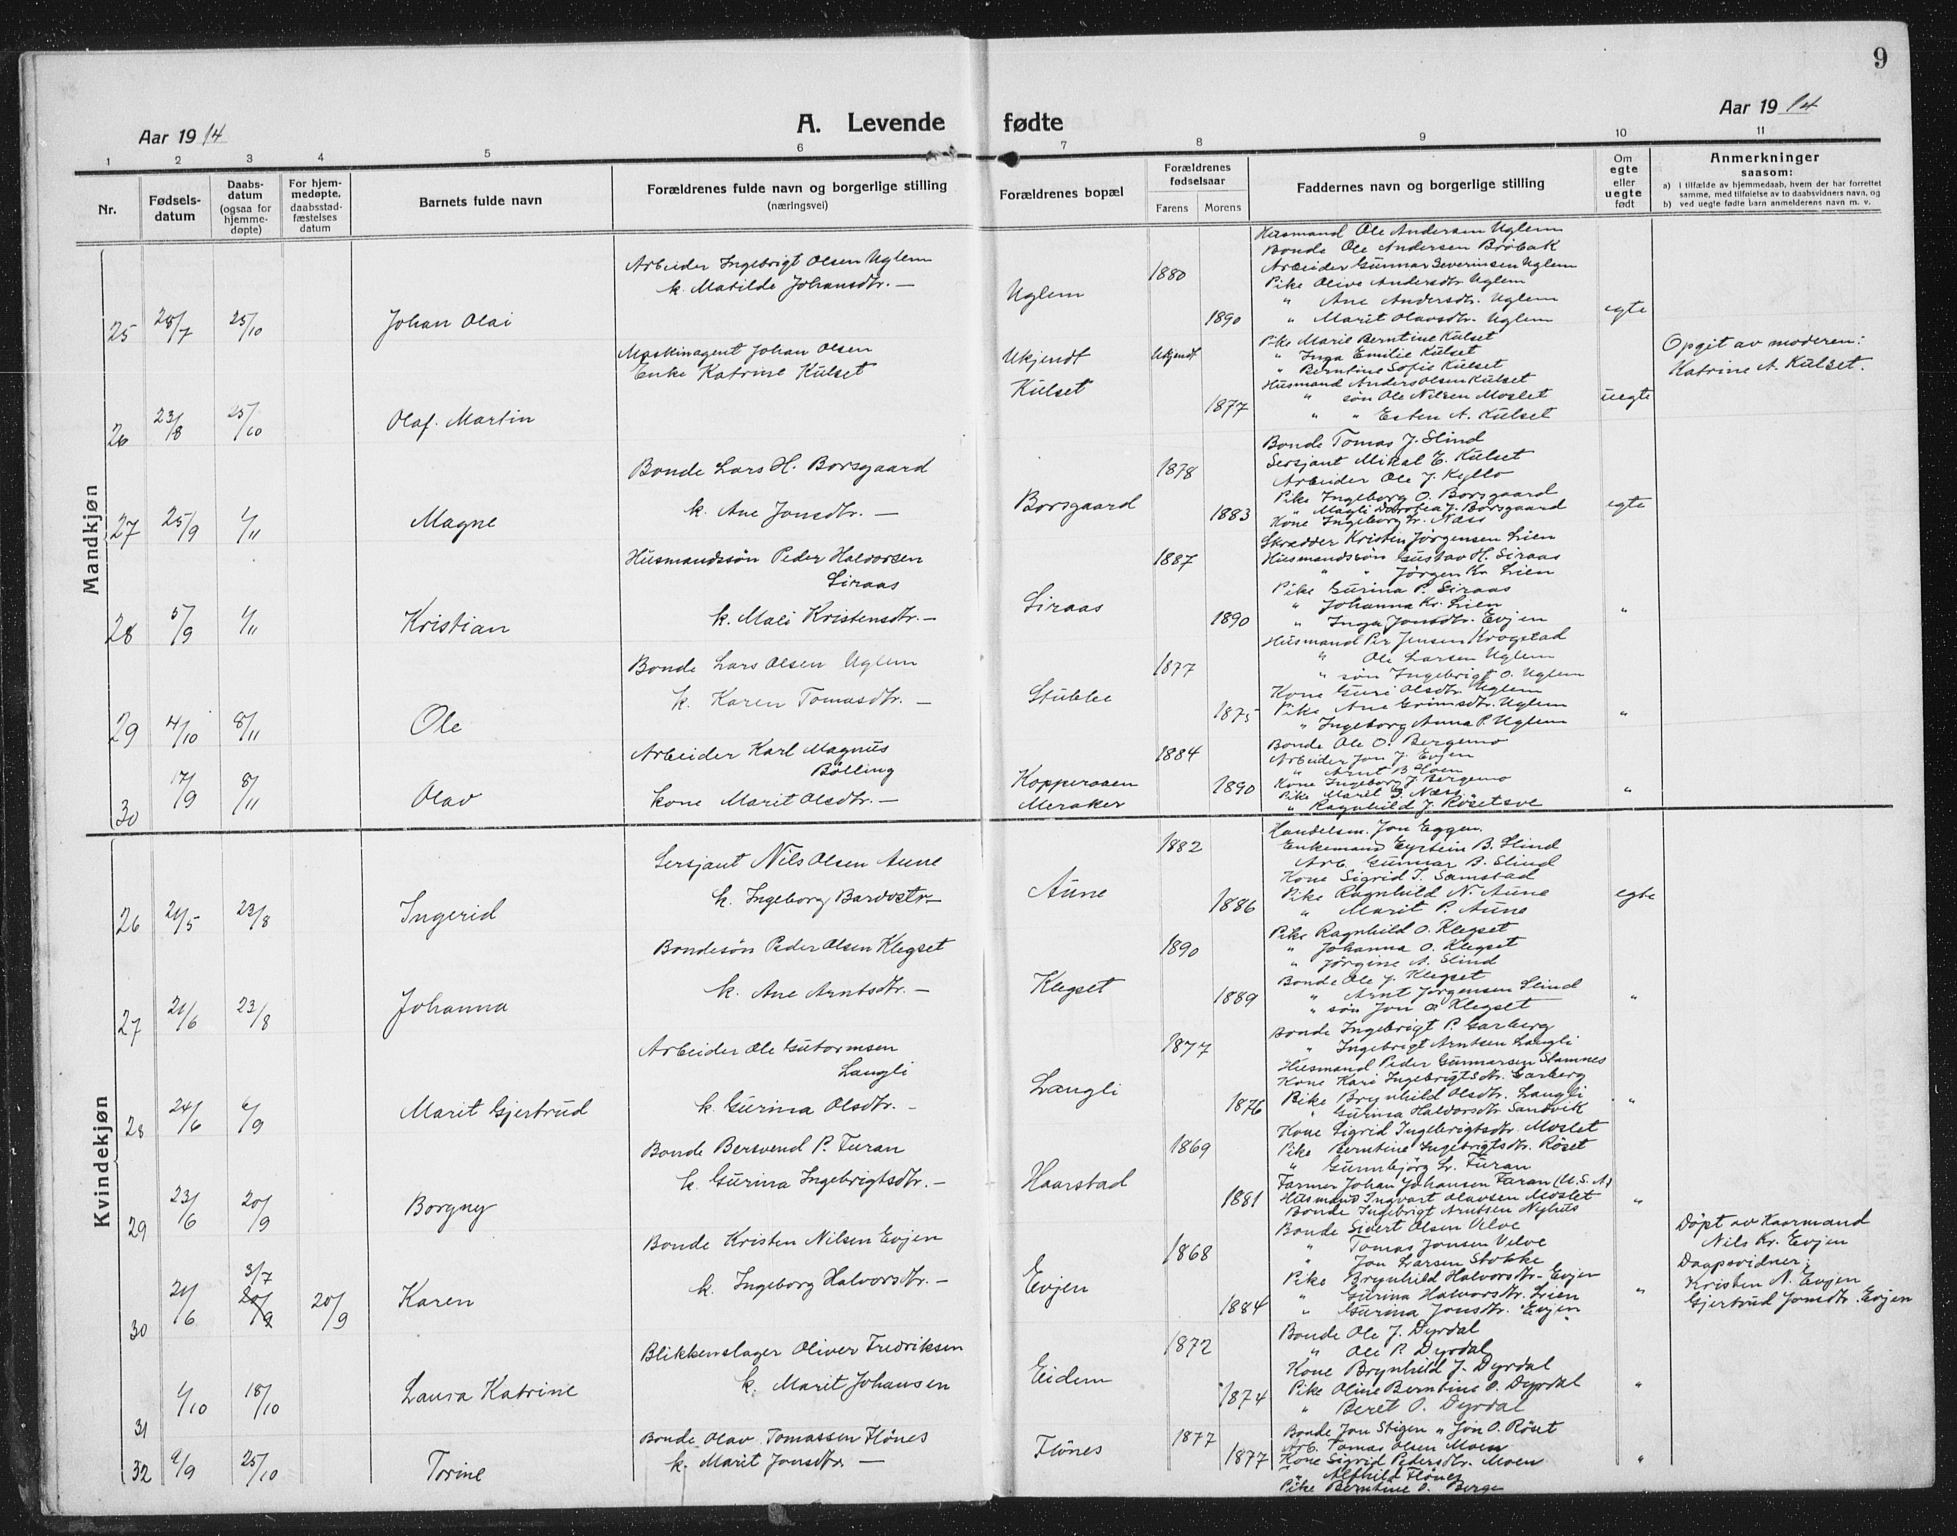 9
Aar 1914
A. Levende fødte
Aar 1914
1 2 3 4 5 6 7 8 9 10 11
Nr.
Fødselsdatum
Daabsdatum (ogsaa for hjemmedøpte)
For hjemmedøpte, daabsstadfæstelses datum
Barnets fulde navn
Forældrenes fulde navn og borgerlige stilling (næringsvei)
Forældrenes bopæl
Forældrenes fødselsaar
Farens Morens
Faddernes navn og borgerlige stilling
Om egte eller uegte født
Anmerkninger saasom:
a) i tilfælde av hjemmedaab, hvem der har forrettet samme, med tilføielse av to daabsvidners navn, og
b) ved uegte fødte barn anmelderens navn m. v.
Mandkjøn
25 28/7 25/10 Johan Olai
Arbeider Ingebrigt Olsen Uglem
k. Matilde Johansdtr. —
Uglem 1880 1890
Husmand Ole Andersen Uglem
Bonde Ole Andersen Bröbak
Arbeider Gunnar Severinsen Uglem
Pike Olive Andersdtr Uglem
" Ane Andersdtr. Uglem
" Marit Olavsdtr. Uglem
egte
26 23/8 25/10 Olaf Martin
Maskinagent Johan Olsen
Enke Katrine Kulset
Ukjendt Ukjendt
Kulset 1877
Pike Marie Berntine Kulset
" Inga Emilie Kulset
" Berntine Sofie Kulset
Husmand Anders Olsen Kulset
" søn Ole Nilsen Moslet
" " Esten A. Kulset
uegte
Opgit av moderen:
Katrine A. Kulset.
27 25/9 1/11 Magne
Bonde Lars H. Borsgaard
k. Ane Jonsdtr. —
Borsgaard 1878 1883
Bonde Tomas J. Slind
Sersjant Mikal E. Kulset
Arbeider Ole J. Kyllo
Pike Ingeborg O. Borsgaard
" Magli Dorotea J. Borsgaard
Kone Ingeborg Lr. Næss
egte
28 5/9 1/11 Kristian
Husmandssön Peder Halvorsen
Siraas
k. Mali Kristensdtr. —
Siraas 1887 1890
Skrædder Kristen Jörgensen Lien
Husmandssön Gustav H. Siraas
" " Jörgen Kr. Lien
Pike Gurina P. Siraas
" Johanna Kr. Lien
" Inga Jonsdtr. Evjen
"
29 4/10 8/11 Ole
Bonde Lars Olsen Uglem
k. Karen Tomasdtr. —
Stubbe 1877 1875
Husmand Per Jensen Krogstad
" Ole Larsen Uglem
" søn Ingebrigt O. Uglem
Kone Guri Olsdtr Uglem
Pike Ane Grimsdtr. Uglem
" Ingeborg Anna P. Uglem
"
30 17/9 8/11 Olav
Arbeider Karl Magnus
Bölling
kone Marit Olsdtr. —
Kopperaaen
Meraker 1884 1890
Bonde Ole O. Bergemo
Arbeider Jon J. Evjen
" Arnt B Hoen
Kone Ingeborg J. Bergemo
Pike Marit G. Næss
" Ragnhild J. Rösetsve
"
Kvindekjøn
26 21/5 23/8 Ingerid
Sersjant Nils Olsen Aune
k. Ingeborg Bardostr —
Aune 1882 1886
Handelsm. Jon Eggen.
Enkemand Eystein B. Slind
Arb. Gunnar B. Slind
Kone Sigrid T. Samstad
Pike Ragnhild N. Aune
" Marit P. Aune
egte
27 21/6 23/8 Johanna
Bondesön Peder Olsen Klegset
k. Ane Arntsdtr. —
Klegset 1890 1889
Pike Ragnhild O. Klegset
" Johanna O. Klegset
" Jörgine A. Slind
Bonde Ole J. Klegset
" Arnt Jörgensen Slind
" søn Jon O Klegset
"
28 24/6 6/9 Marit Gjertrud
Arbeider Ole Gutormsen
Langli
k. Gurina Olsdtr. —
Langli 1877 1876
Bonde Ingebrigt P. Garberg
" Ingebrigt Arntsen Langli
Husmand Peder Gunnarsen Stamnes
Kone Kari Ingebrigtsdtr. Garberg
Pike Brynhild Olsdtr. Langli
" Gurina Halvorsdtr Sandvik
"
29 23/6 20/9 Borgny
Bonde Bersvend P. Furan
k. Gurina Ingebrigtsdtr. —
Haarstad 1869 1881
Kone Sigrid Ingebrigtsdtr. Moslet
Pike Berntine Ingebrigtsdtr. Röset
" Gunnbjörg L. Furan
Farmer Johan Johansen Faran (U.S.A)
Husmand Ingvart Olavsen Moslet
Bonde Ingebrigt Arntsen Nyhus
"
30 21/6 3/7 20/9 20/9 Karen
Bonde Kristen Nilsen Evjen
k. Ingeborg Halvorsdtr. —
Evjen 1868 1884
Bonde Sivert Olsen Velve
" Tomas Jonsen Velve
" Jon Larsen Stokke
Pike Brynhild Halvorsdtr. Evjen
" Gurina Halvorsdtr. Lien
" Gurina Jonsdtr. Evjen
"
Döpt av Kaarmand
Nils Kr. Evjen
Daapsvidner:
Kristen N. Evjen
Gjertrud Jonsdtr. Evjen
31 1/10 18/10 Laura Katrine
Blikkenslager Oliver Fredriksen
k. Marit Johansen
Eidem 1872 1874
Bonde Ole J. Dyrdal
" Ole P. Dyrdal
Kone Brynhild J. Dyrdal
Pike Oline Berntine O. Dyrdal
" Beret O. Dyrdal
"
32 9/9 25/10 Torine
Bonde Olav Tomassen Flönes
k. Marit Jonsdtr. —
Flönes 1877 1877
Bonde Jon Stigen " Jon O. Röset
Arb. Tomas Olsen Moen
Kone Sigrid Pedersdtr. Moen
" Alfhild Flönes
Pike Berntine O. Berge
"